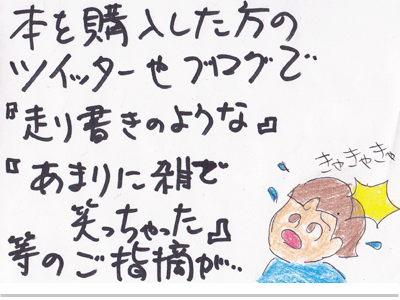 本を購入した方の
ツイッターやブログで
『走り書きのような』
『あまりに雑で
笑っちゃった』
等のご指摘が…
きゃきゃきゃ